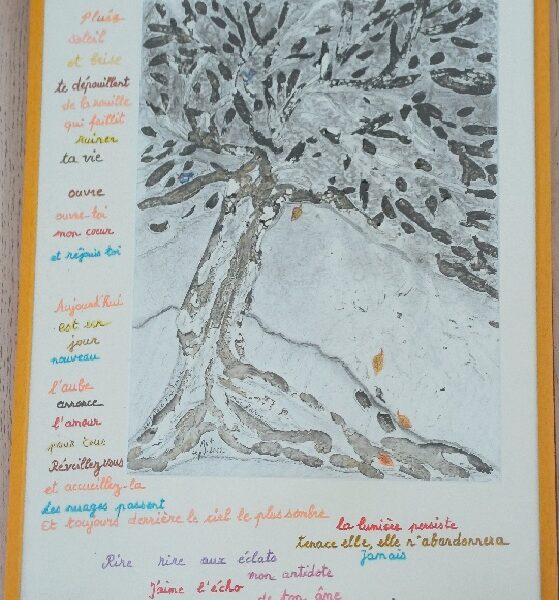 Pluie
soleil
et brise
te dépouillent
de la rouille
qui faillit
ruiner
ta vie
ouvre
ouvre-toi
mon cœur
et réjouis toi
Aujourd'hui
est un
jour
nouveau
l'aube
annonce
l'amour
pour tous
Réveillez-vous
et accueillez-la
Les nuages passent
Et toujours derrière le ciel le plus sombre
la lumière persiste
tenace elle, elle n'abandonnera
jamais
Rire rire aux éclats
mon antidote
j'aime l'écho
de ton âme